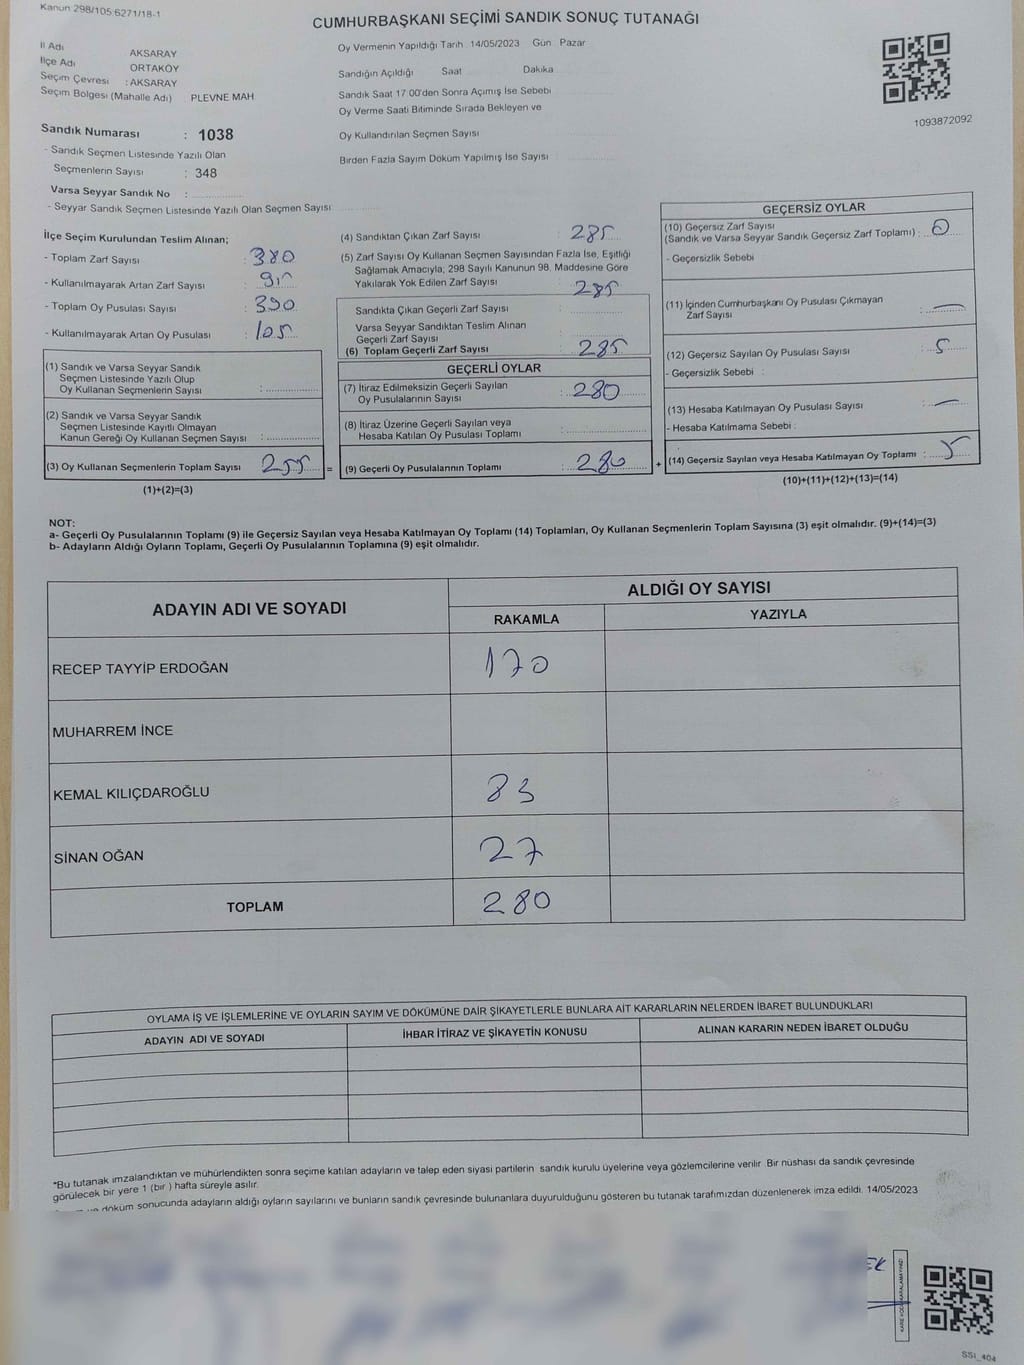 Kanun 298/105 6271/18-1
CUMHURBAŞKANI SEÇİMİ SANDIK SONUÇ TUTANAĞI
İl Adı AKSARAY
İlçe Adı ORTAKÖY
Seçim Çevresi : AKSARAY
Seçim Bölgesi (Mahalle Adı) PLEVNE MAH
Oy Vermenin Yapıldığı Tarih 14/05/2023 Gün Pazar
Sandığın Açıldığı Saat Dakika
Sandık Saat 17 00'den Sonra Açımış İse Sebebi
Oy Verme Saati Bitiminde Sırada Bekleyen ve
Oy Kullandırılan Seçmen Sayısı
Birden Fazla Sayım Döküm Yapılmış İse Sayısı
1093872092
Sandık Numarası : 1038
- Sandık Seçmen Listesinde Yazılı Olan
Seçmenlerin Sayısı : 348
Varsa Seyyar Sandık No :
- Seyyar Sandık Seçmen Listesinde Yazılı Olan Seçmen Sayısı
İlçe Seçim Kurulundan Teslim Alınan;
- Toplam Zarf Sayısı : 380
- Kullanılmayarak Artan Zarf Sayısı :
- Toplam Oy Pusulası Sayısı : 390
- Kullanılmayarak Artan Oy Pusulası : 105
(1) Sandık ve Varsa Seyyar Sandık
Seçmen Listesinde Yazılı Olup
Oy Kullanan Seçmenlerin Sayısı :
(2) Sandık ve Varsa Seyyar Sandık
Seçmen Listesinde Kayıtlı Olmayan
Kanun Gereği Oy Kullanan Seçmen Sayısı :
(3) Oy Kullanan Seçmenlerin Toplam Sayısı 255 =
(1)+(2)=(3)
(4) Sandıktan Çıkan Zarf Sayısı : 285
(5) Zarf Sayısı Oy Kullanan Seçmen Sayısından Fazla İse, Eşitliği
Sağlamak Amacıyla; 298 Sayılı Kanunun 98. Maddesine Göre
Yakılarak Yok Edilen Zarf Sayısı : 285
Sandıkta Çıkan Geçerli Zarf Sayısı :
Varsa Seyyar Sandıktan Teslim Alınan
Geçerli Zarf Sayısı :
(6) Toplam Geçerli Zarf Sayısı : 285
GEÇERLİ OYLAR
(7) İtiraz Edilmeksizin Geçerli Sayılan
Oy Pusulalarının Sayısı : 280
(8) İtiraz Üzerine Geçerli Sayılan veya
Hesaba Katılan Oy Pusulası Toplamı :
(9) Geçerli Oy Pusulalarının Toplamı : 280 +
GEÇERSİZ OYLAR
(10) Geçersiz Zarf Sayısı
(Sandık ve Varsa Seyyar Sandık Geçersiz Zarf Toplamı) : 0
- Geçersizlik Sebebi
(11) İçinden Cumhurbaşkanı Oy Pusulası Çıkmayan
Zarf Sayısı : —
(12) Geçersiz Sayılan Oy Pusulası Sayısı : 5
- Geçersizlik Sebebi :
(13) Hesaba Katılmayan Oy Pusulası Sayısı : —
- Hesaba Katılmama Sebebi :
(14) Geçersiz Sayılan veya Hesaba Katılmayan Oy Toplamı : 5
(10)+(11)+(12)+(13)=(14)
NOT:
a- Geçerli Oy Pusulalarının Toplamı (9) ile Geçersiz Sayılan veya Hesaba Katılmayan Oy Toplamı (14) Toplamları, Oy Kullanan Seçmenlerin Toplam Sayısına (3) eşit olmalıdır. (9)+(14)=(3)
b- Adayların Aldığı Oyların Toplamı, Geçerli Oy Pusulalarının Toplamına (9) eşit olmalıdır.
ADAYIN ADI VE SOYADI ALDIĞI OY SAYISI
RAKAMLA YAZIYLA
RECEP TAYYİP ERDOĞAN 170
MUHARREM İNCE
KEMAL KILIÇDAROĞLU 83
SİNAN OĞAN 27
TOPLAM 280
OYLAMA İŞ VE İŞLEMLERİNE VE OYLARIN SAYIM VE DÖKÜMÜNE DAİR ŞİKAYETLERLE BUNLARA AİT KARARLARIN NELERDEN İBARET BULUNDUKLARI
ADAYIN ADI VE SOYADI İHBAR İTİRAZ VE ŞİKAYETİN KONUSU ALINAN KARARIN NEDEN İBARET OLDUĞU
*Bu tutanak imzalandıktan ve mühürlendikten sonra seçime katılan adayların ve talep eden siyasi partilerin sandık kurulu üyelerine veya gözlemcilerine verilir. Bir nüshası da sandık çevresinde
görülecek bir yere 1 (bir ) hafta süreyle asılır.
ve döküm sonucunda adayların aldığı oyların sayılarını ve bunların sandık çevresinde bulunanlara duyurulduğunu gösteren bu tutanak tarafımızdan düzenlenerek imza edildi. 14/05/2023
SSI_404